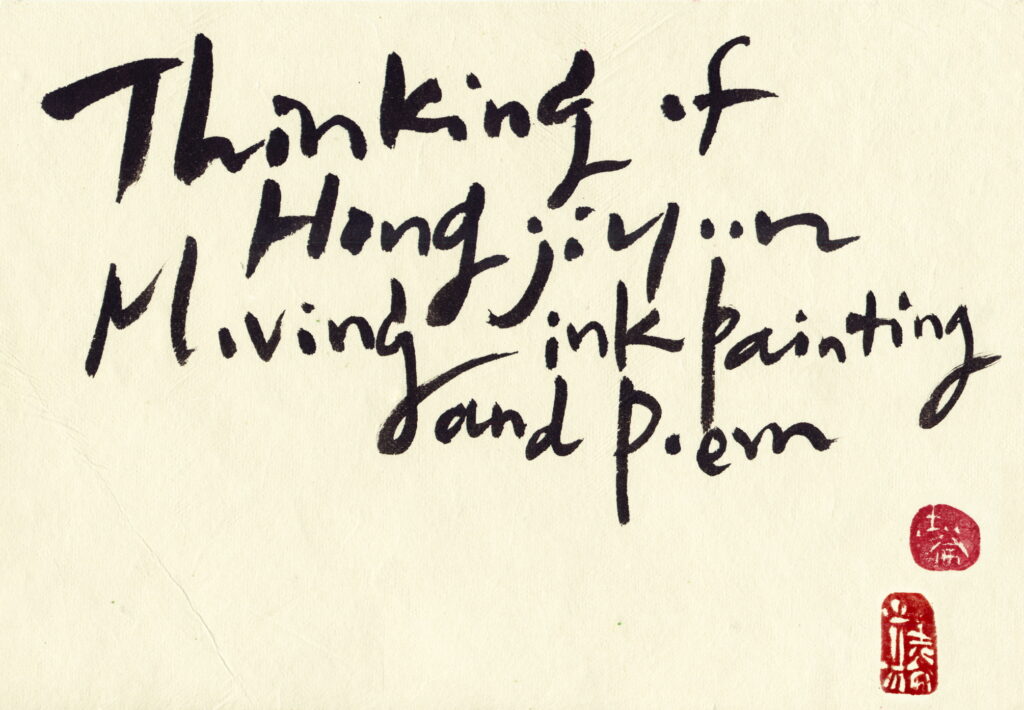 Thinking of
Hong jiyoon
Moving ink painting
and poem